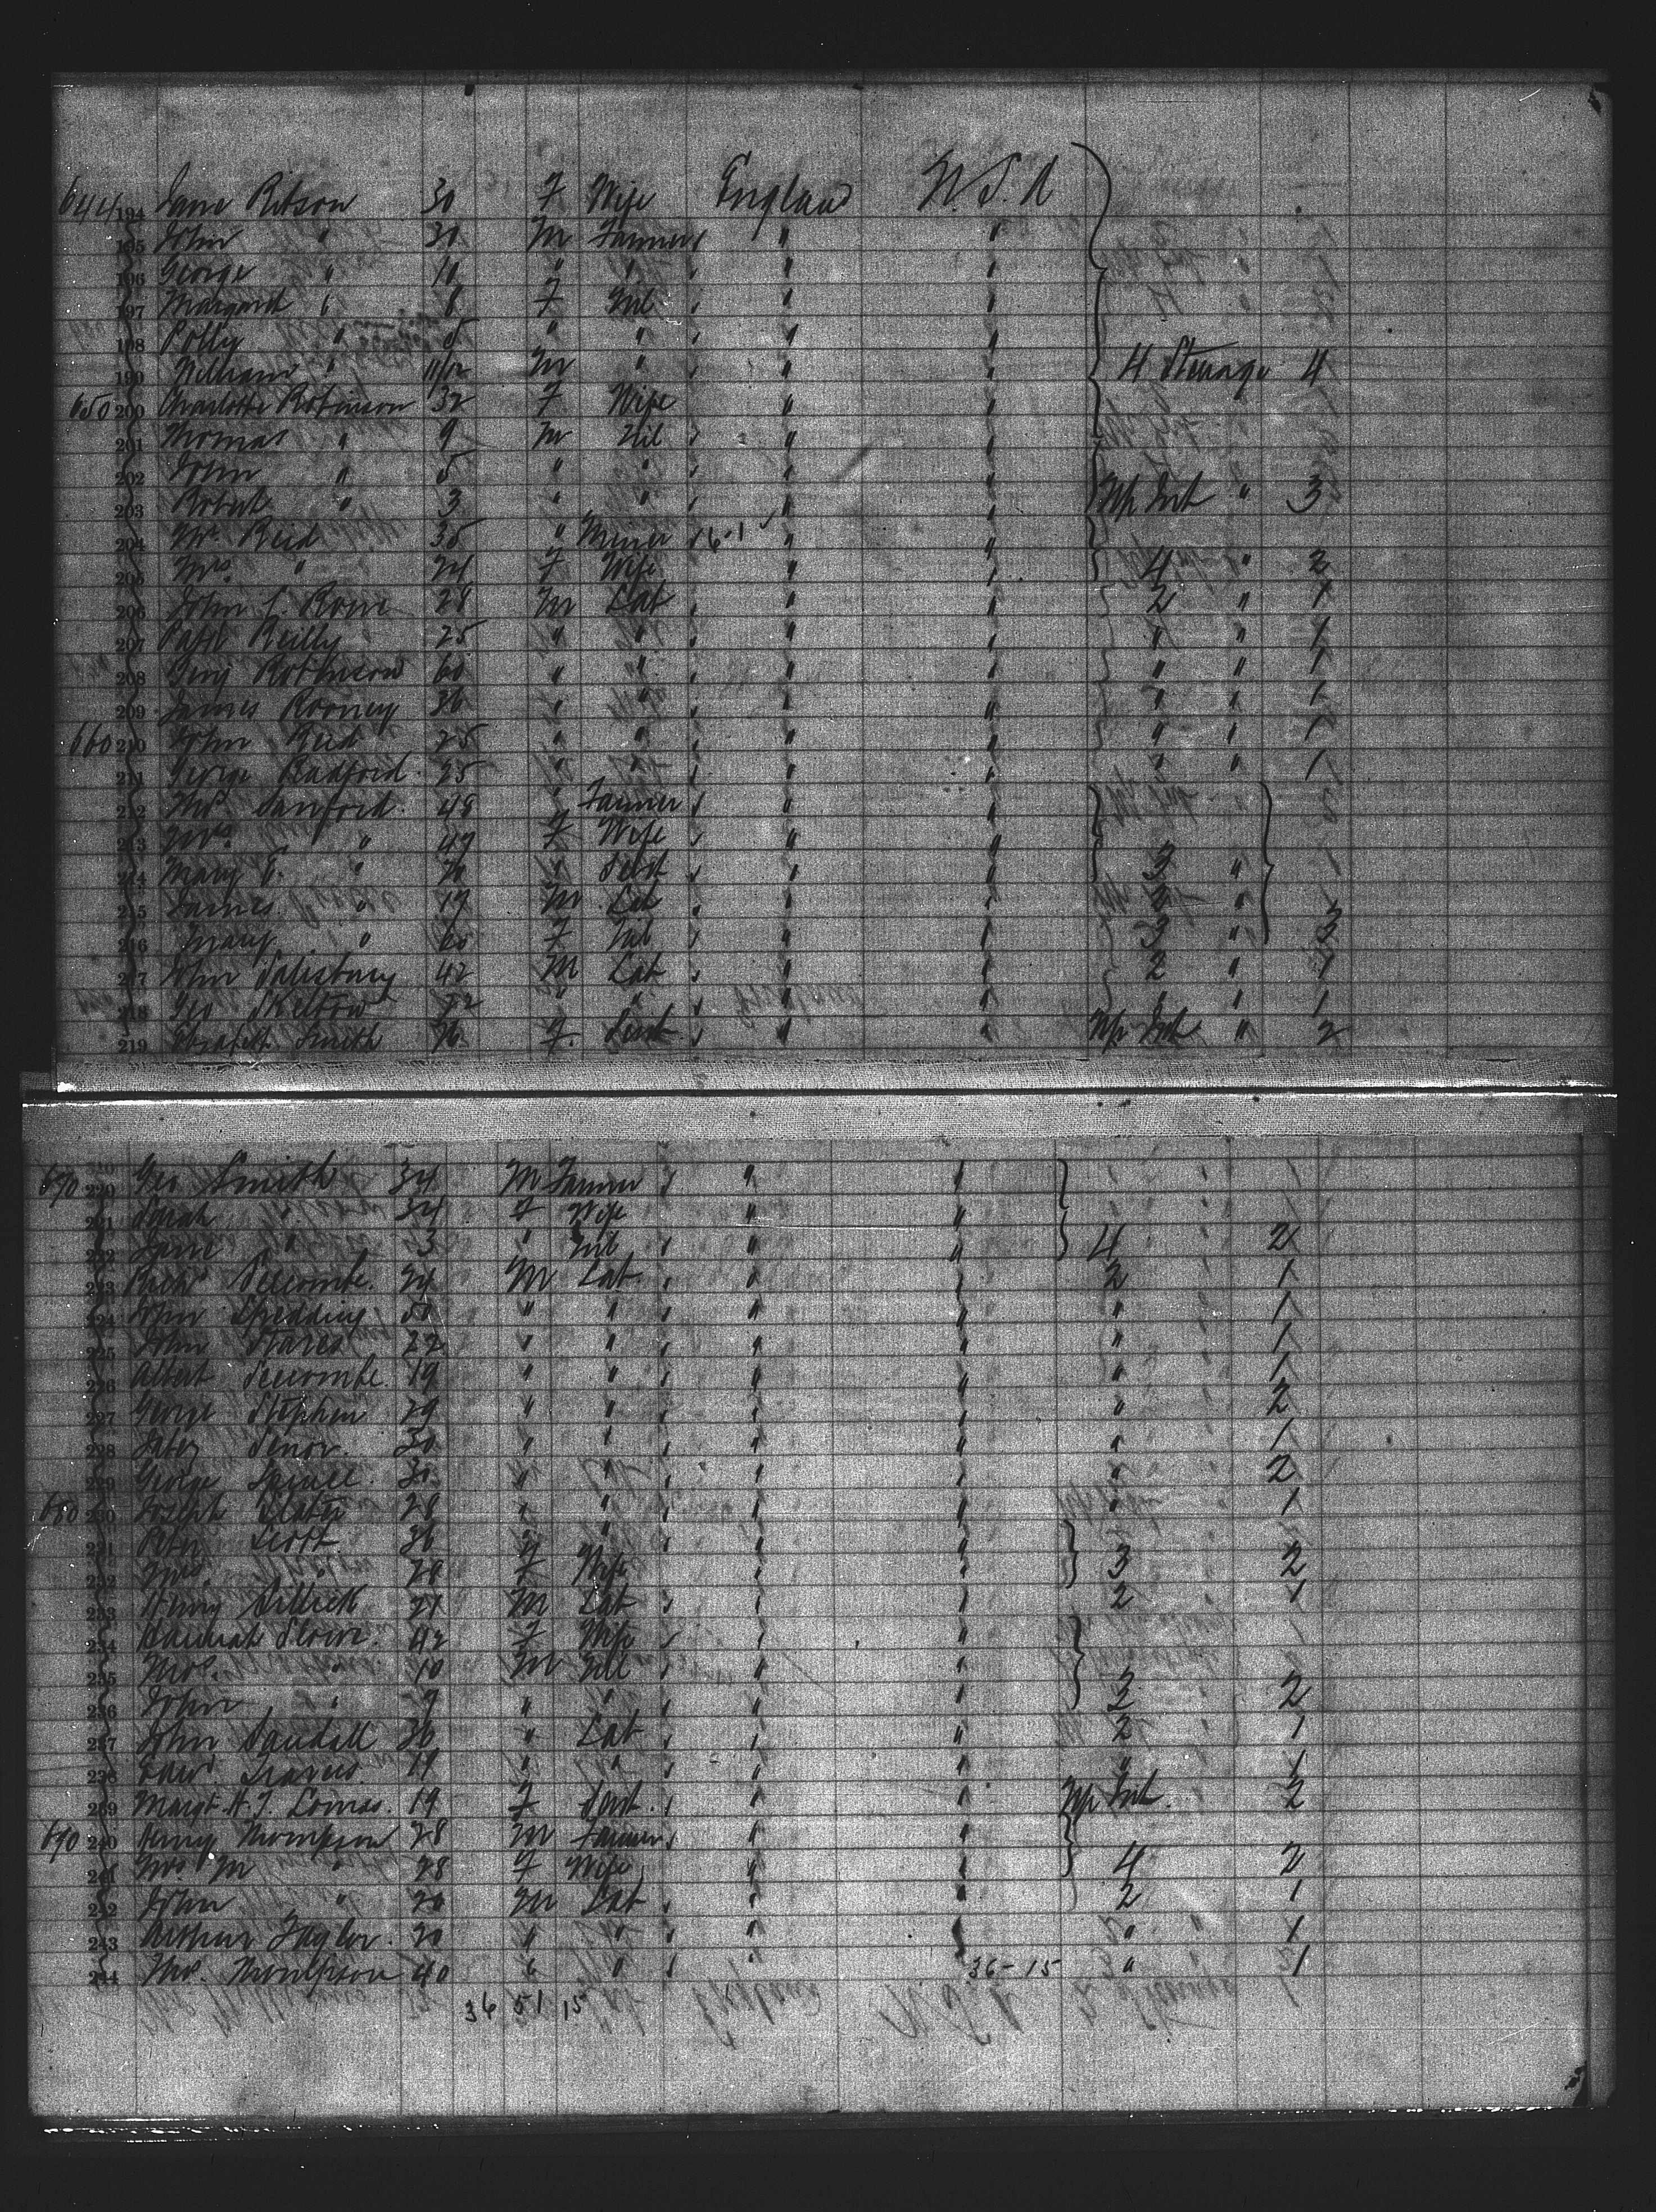 644 194 Jane Ritson 30 F Wife England U.S.A
195 John " 30 M Farmer " "
196 George " 10 " " " "
197 Margaret " 8 F Nil " "
198 Polly " 5 " " " "
199 William " 11/12 M " " " 4 Steerage 4
650 200 Charlotte Robinson 32 F Wife " "
201 Thomas " 9 M Nil " "
202 John " 5 " " " "
203 Robert " 3 " " " " Up Int " 3
204 Mr. Reid 35 " Miner 16-1 " "
205 Mrs. " 24 F Wife " " 4 " 2
206 John 28 M Lab " " 2 " 1
207 Patk Reilly 25 " " " " " " 1
208 Robinson 60 " " " " " " 1
209 James Rooney 36 " " " " " " 1
660 210 John Reid 25 " " " " " " 1
211 George Radford 25 " " " " " " 1
212 Thos. Sanford 48 " Farmer " "
213 Mrs. " 47 F Wife " "
214 Mary E. " " Servt " " 3 "
215 James " 19 M Lab " " 2 "
216 Mary " F " " 3 " 3
217 John Salisbury 42 M Lab " " 2 " 1
218 Geo Skelton 22 " " " " " " 1
219 Elizabeth Smith 76 F Servt " " Up Int " 2
670 220 Geo Smith 34 M Farmer " "
221 Sarah " 34 F Wife " "
222 Jane " 3 " Nil " " 4 " 2
223 Richd Seccombe 24 M Lab " " 2 " 1
224 John Spedding 50 " " " " " " 1
225 John 22 " " " " " " 1
226 Albert Seccombe 19 " " " " " " 1
227 George Stephen 29 " " " " " " 2
228 Jabez Senor 30 " " " " " " 1
229 George 30 " " " " " " 2
680 230 Joseph 28 " " " " " " 1
231 Peter Scott 36 " " " "
232 Mrs. " 28 F Wife " " 3 " 2
233 Henry 21 M Lab " " 2 " 1
234 Hannah 42 F Wife " "
235 Thos. " 10 M Nil " "
236 John " 9 " " " " 3 " 2
237 John Randall 36 " Lab " " 2 " 1
238 Edwd. 19 " " " " " " 1
239 Margt. H. J. Lomas 19 F Servt. " " Up Int. " 2
690 240 Henry Thompson 28 M Farmer " "
241 Mrs. M " 28 F Wife " " 4 " 2
242 John " 20 M Lab " " 2 " 1
243 Arthur Taylor 20 " " " " " " 1
244 Thos. Thompson 40 " " " " 36-15 " 1
36 51 15